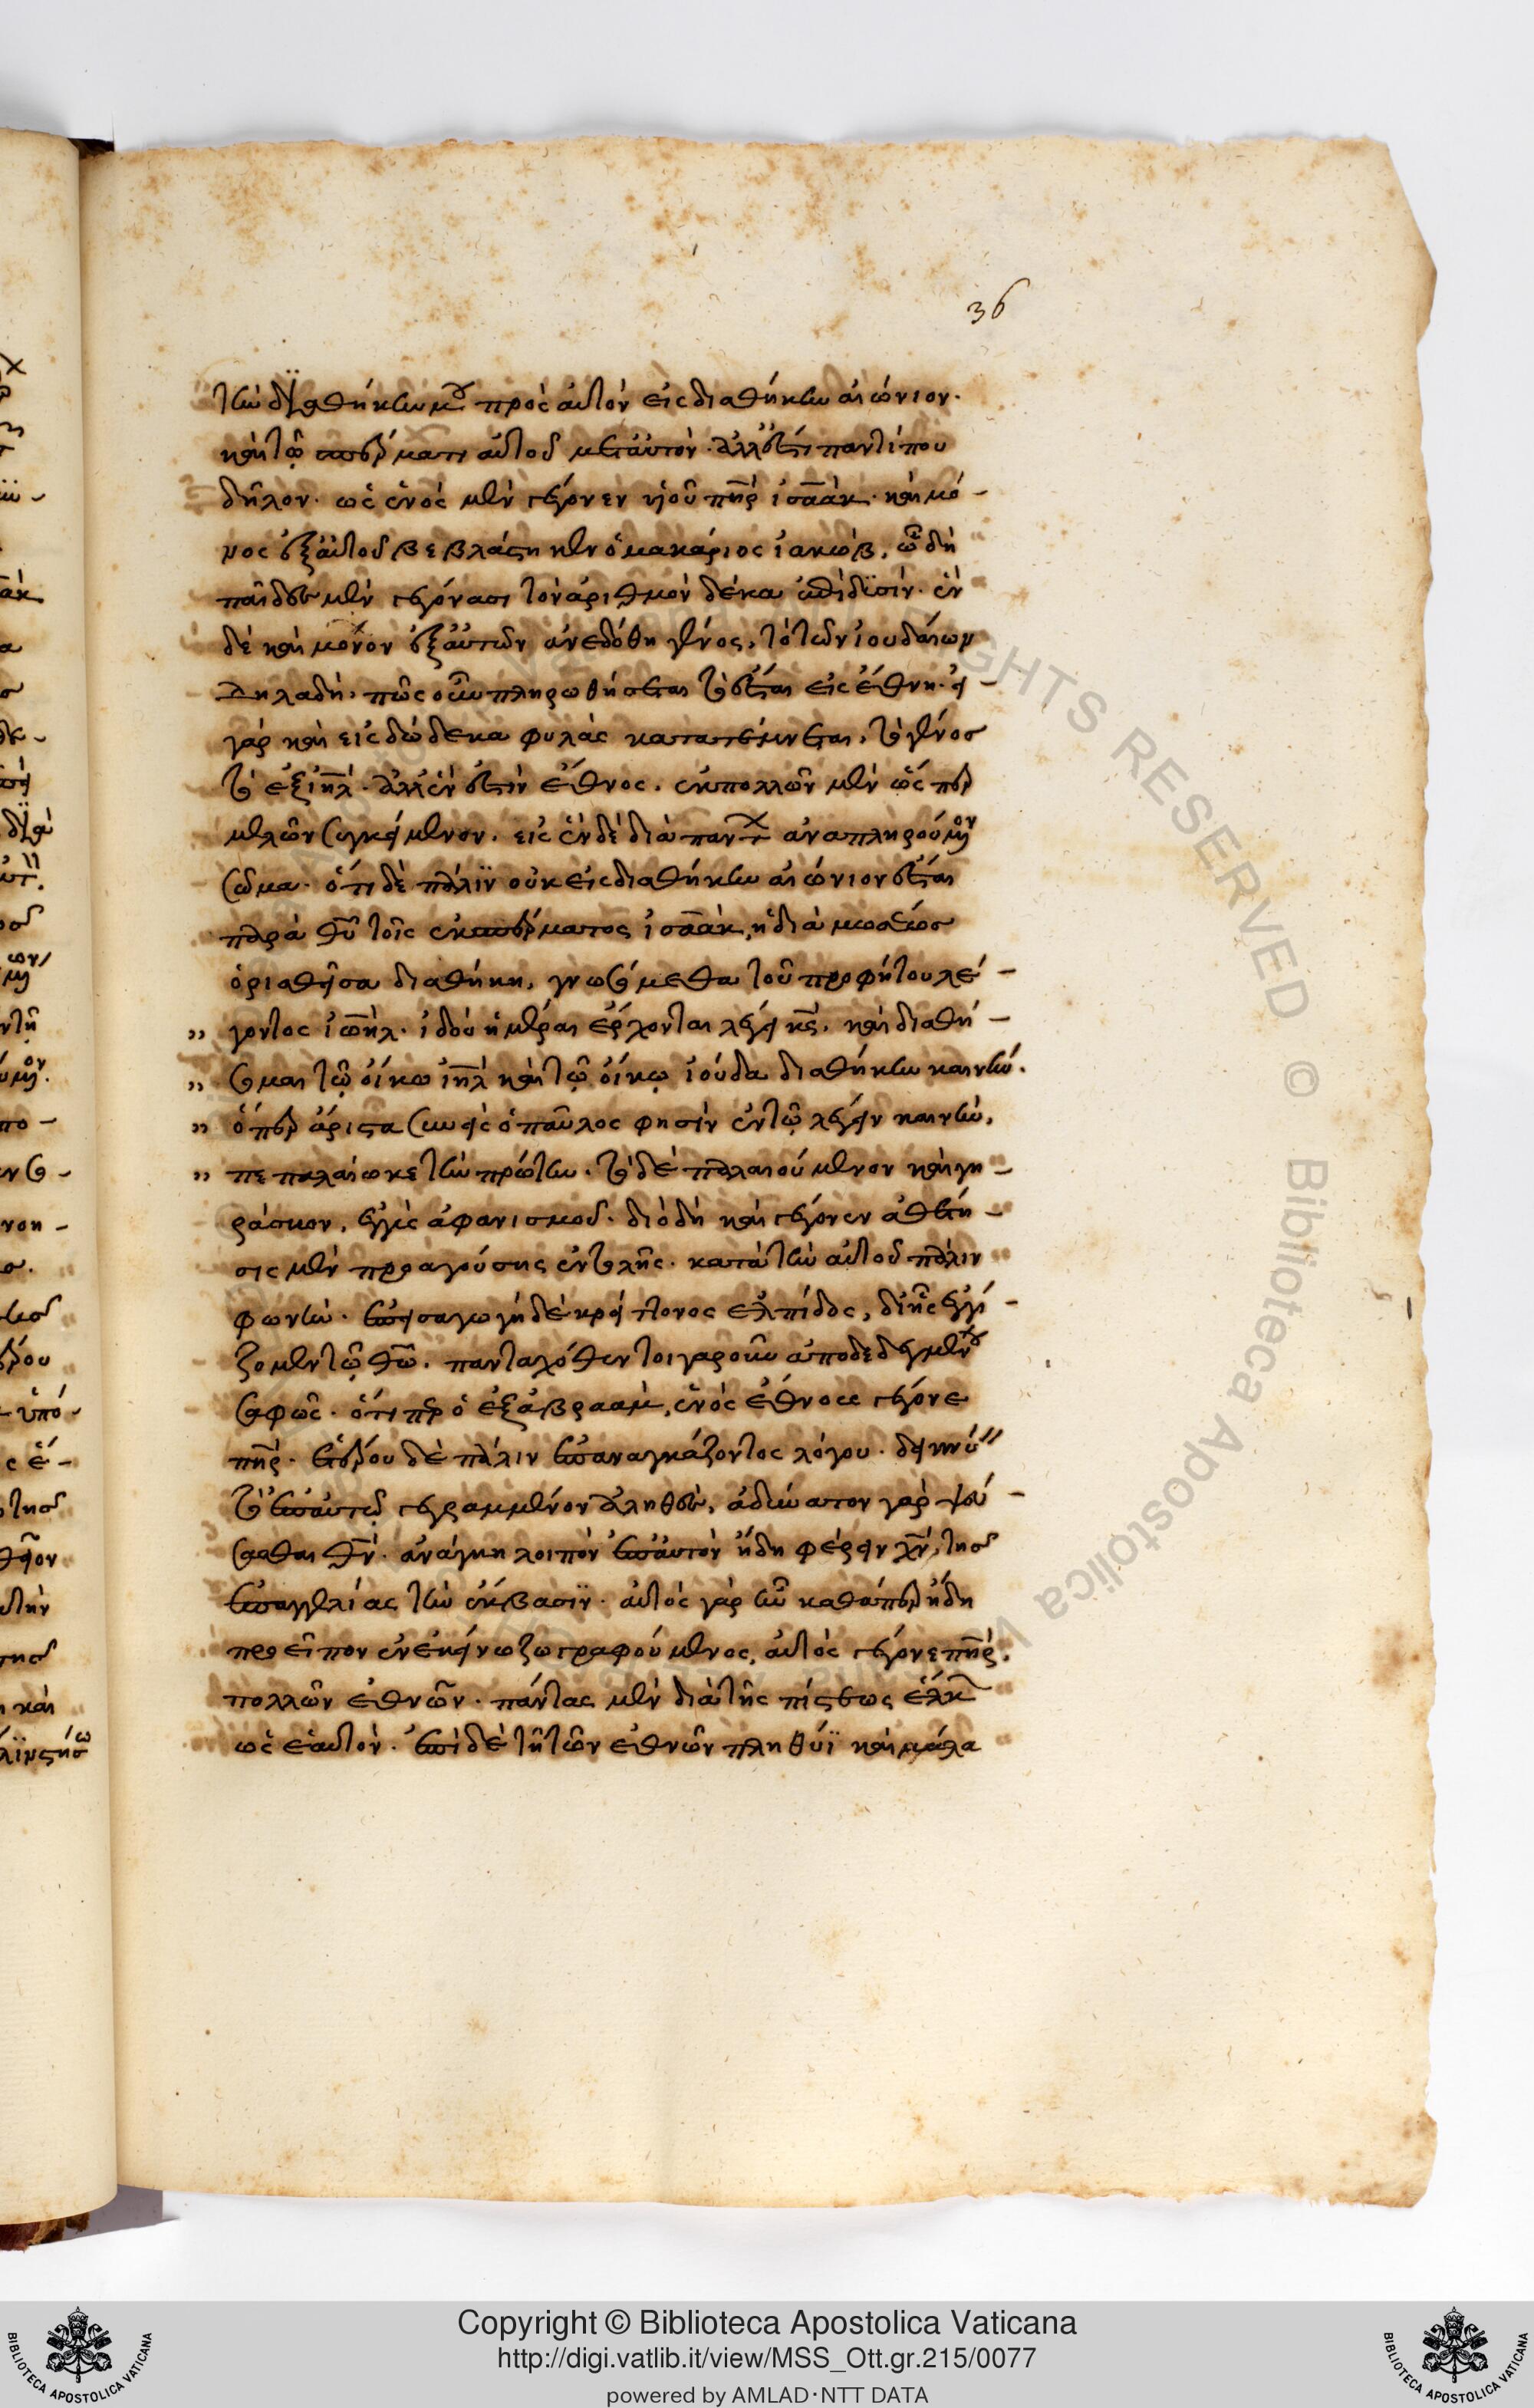 36
τὴν διαθήκην μου πρὸς αὐτὸν εἰς διαθήκην αἰώνιον.
καὶ τῷ σπέρματι αὐτοῦ μετ' αὐτόν. ἀλλ' ἔστι παντί που
δῆλον. ὡς ἑνὸς μὲν γέγονεν υἱοῦ πηρ ἰσαὰκ. καὶ μό-
νος ἐξ αὐτοῦ βεβλάστηκεν ὁ μακάριος ἰακώβ. ᾧ δὴ
παῖδες μὲν γεγόνασι τὸν ἀριθμὸν δέκα ἐπὶ δυσίν. ἓν
δὲ καὶ μόνον ἐξ αὐτῶν ἀνεδόθη γένος, τὸ τῶν ἰουδαίων
δηλαδή. πῶς οὖν πληρωθήσεται τὸ ἔσται εἰς ἔθνη. εἰ
γὰρ καὶ εἰς δώδεκα φυλὰς κατατέμνεται, τὸ γένος
τὸ ἐξ ιηλ. ἀλλ' ἕν ἐστιν ἔθνος. ἐκ πολλῶν μὲν ὥσπερ
μελῶν συγκείμενον. εἰς ἓν δὲ διὰ παντ ἀναπληρούμενον
σῶμα. ὅτι δὲ πάλιν οὐκ εἰς διαθήκην αἰώνιον ἔσται
παρὰ θυ τοῖς ἐκ σπέρματος ἰσαὰκ, ἡ διὰ μωσέως
ὁρισθεῖσα διαθήκη, γνωσόμεθα τοῦ προφήτου λέ-
" γοντος ἰωήλ. ἰδοὺ ἡμέραι ἔρχονται λέγει κς. καὶ διαθή-
" σομαι τῷ οἴκω ιηλ καὶ τῷ οἴκῳ ἰούδα διαθήκην καινήν.
" ὅπερ ἄριστα συνεὶς ὁ παῦλος φησὶν ἐν τῷ λέγειν καινήν,
" πεπαλαίωκε τὴν πρώτην. τὸ δὲ παλαιούμενον καὶ γη-
ράσκον, ἐγγὺς ἀφανισμοῦ. διὸ δὴ καὶ γέγονεν ἀθέτη-
σις μὲν προαγούσης ἐντολῆς. κατὰ τὴν αὐτοῦ πάλιν
φωνήν. ἐπεισαγωγὴ δὲ κρείττονος ἐλπίδος, δι' ἧς ἐγγί-
ζομεν τῷ θω. πανταχόθεν τοιγαροῦν ἀποδεδειγμένου
σαφῶς. ὅτι πηρ ὁ ἐξ ἀβραὰμ, ἑνὸς ἔθνους γέγονε
πηρ. ἑτέρου δὲ πάλιν ἐπαναγκάζοντος λόγου. δεικνύ
τὸ ἐπ' αὐτῷ γεγραμμένον ἀληθὲς, ἀδύνατον γὰρ ψεύ-
σασθαι θν. ἀνάγκη λοιπὸν ἐπ' αὐτὸν ἤδη φέρειν χν, τῆς
ἐπαγγελίας τὴν ἔκβασιν. αὐτὸς γὰρ ἦν καθάπερ ἤδη
προεῖπον ἐν ἐκείνω ζωγραφούμενος, αὐτὸς γέγονε πηρ.
πολλῶν ἐθνῶν. πάντας μὲν διὰ τῆς πίστεως ἕλκ
ὡς ἑαυτόν. ἐπὶ δὲ τῇ τῶν ἐθνῶν πληθύϊ καὶ μάλα
Copyright © Biblioteca Apostolica Vaticana
http://digi.vatlib.it/view/MSS_Ott.gr.215/0077
powered by AMLAD·NTT DATA